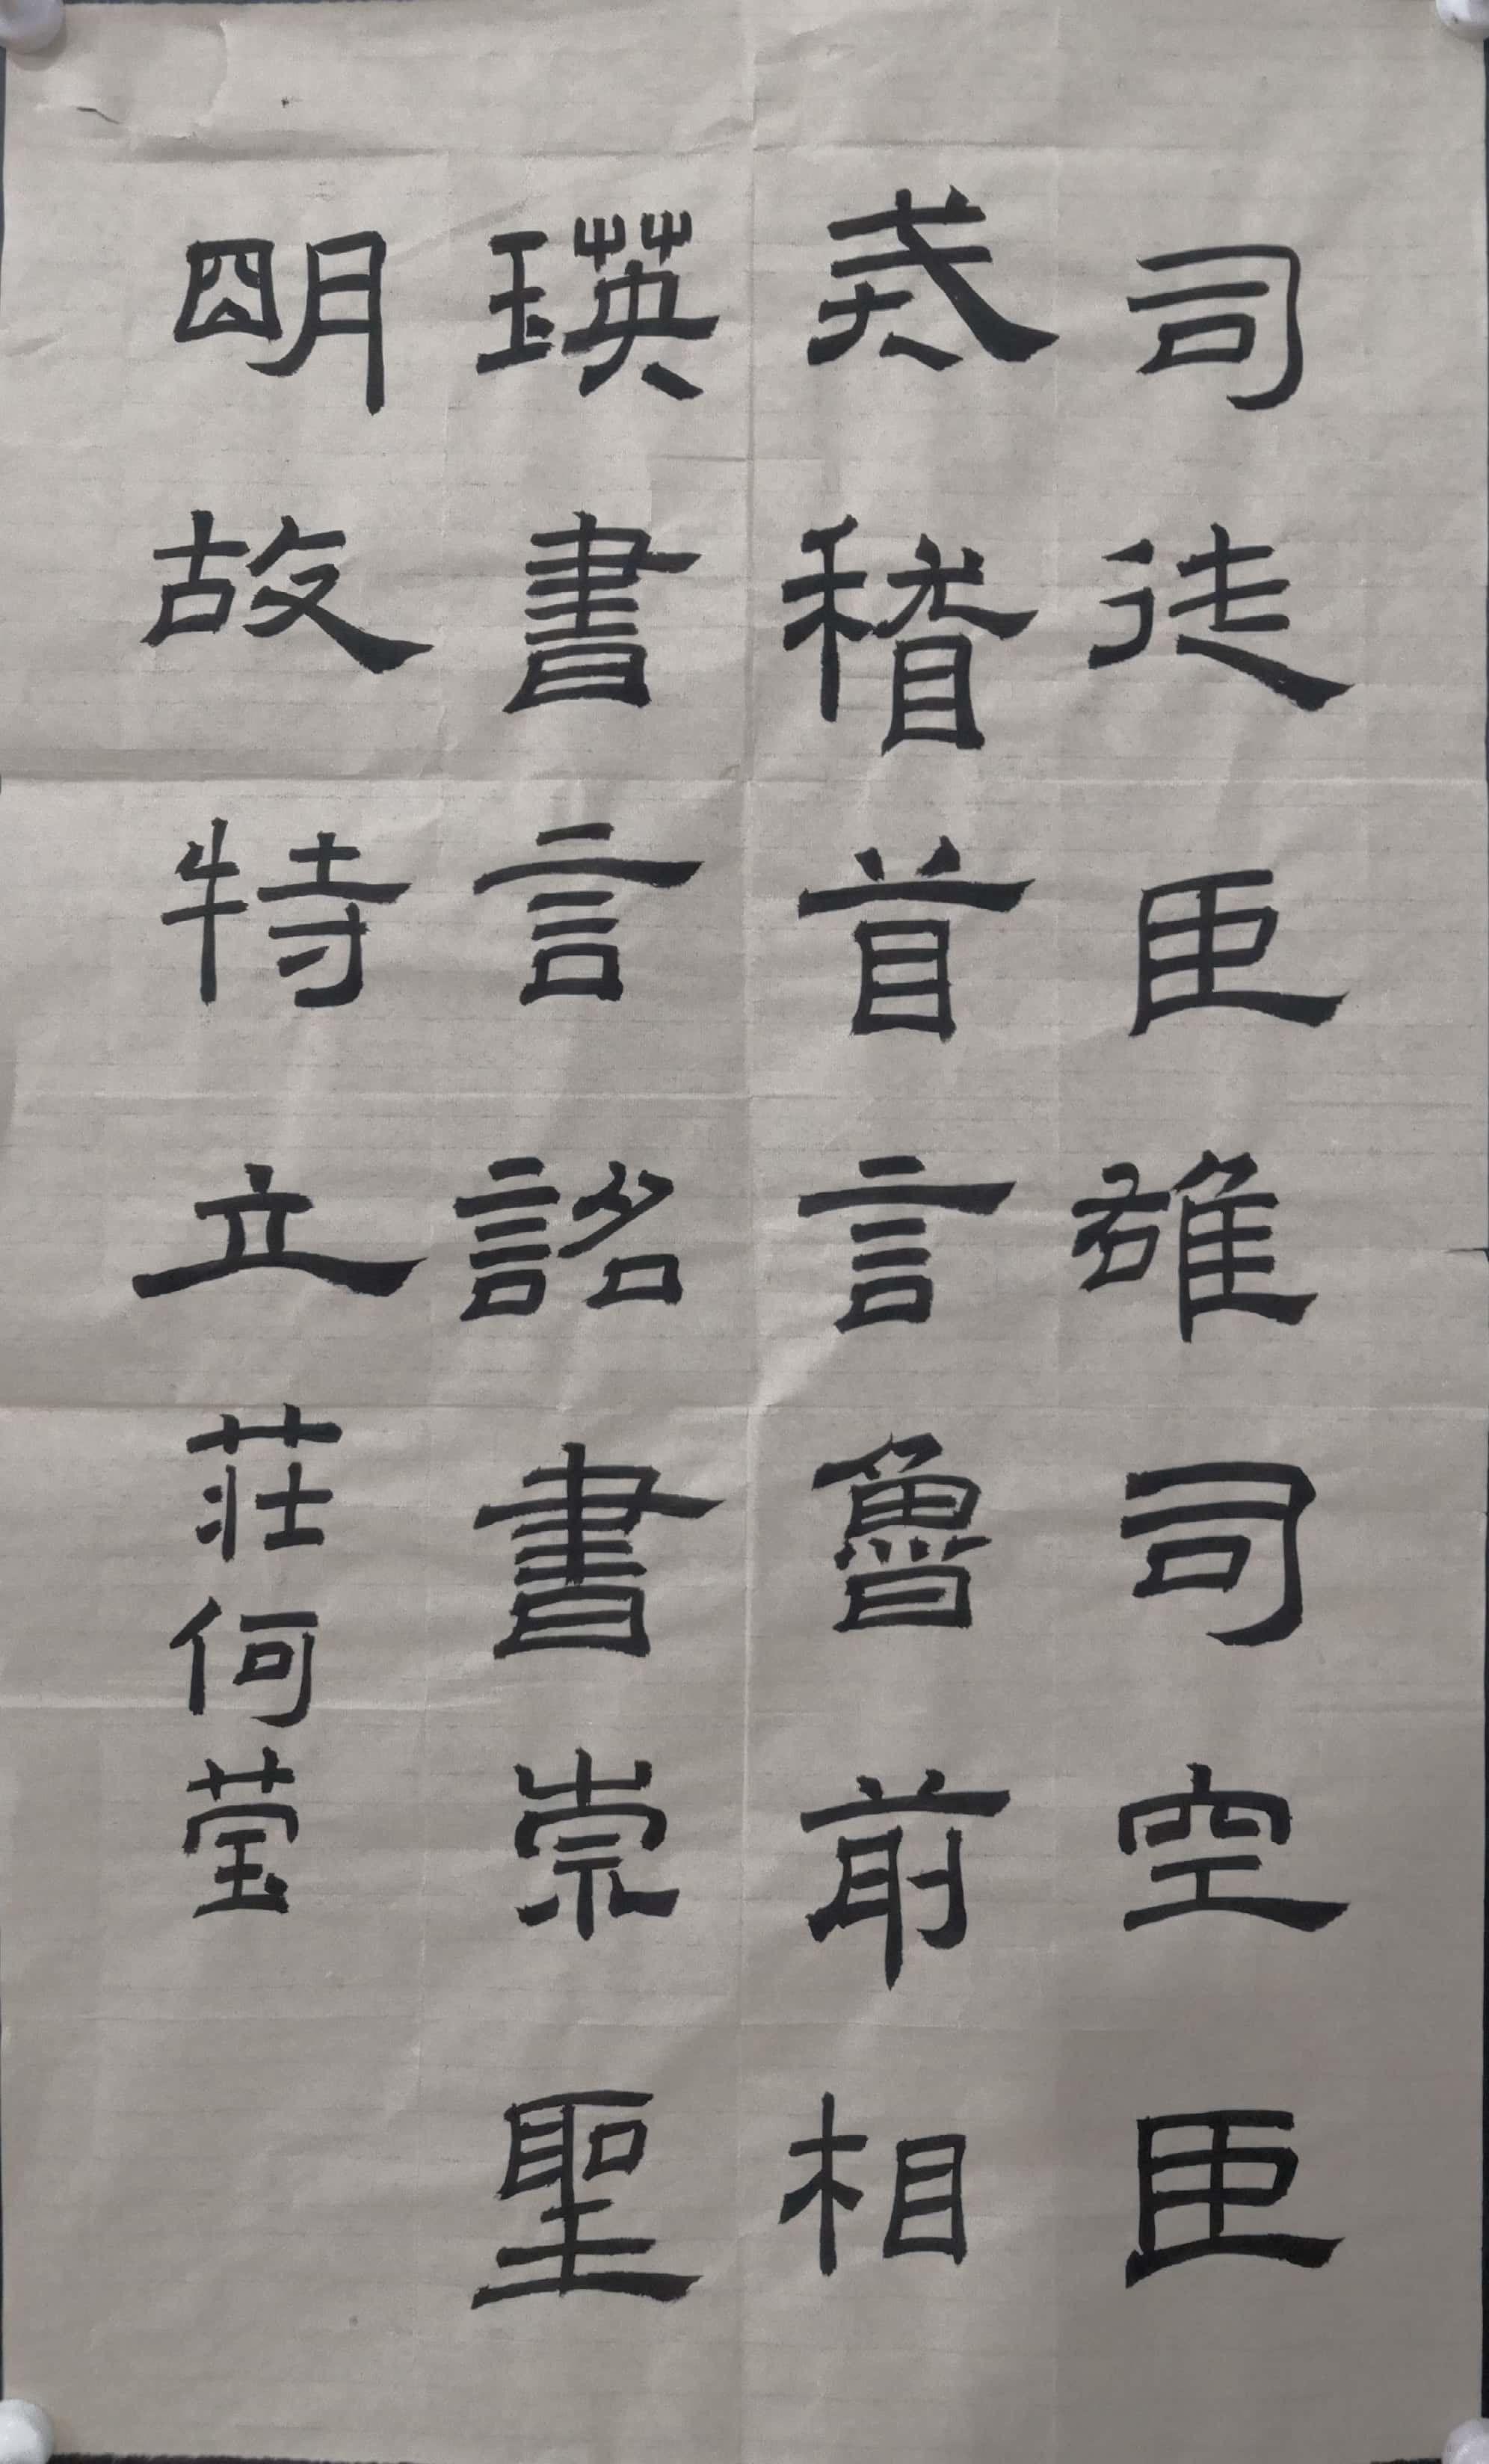 司徒臣雄司空臣
戒稽首言魯前相
瑛書言詔書崇聖
明故特立 莊何莹